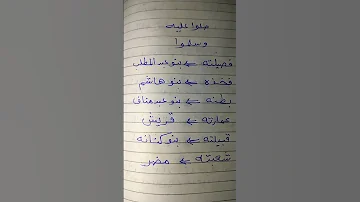 صلوا عليه
وسلموا
فصيلته ← بنو عبد المطلب
فخذه ← بنو هاشم
بطنه ← بنو عبد مناف
عمارته ← قريش
قبيلته ← بنو كنانه
شعبته ← مضر